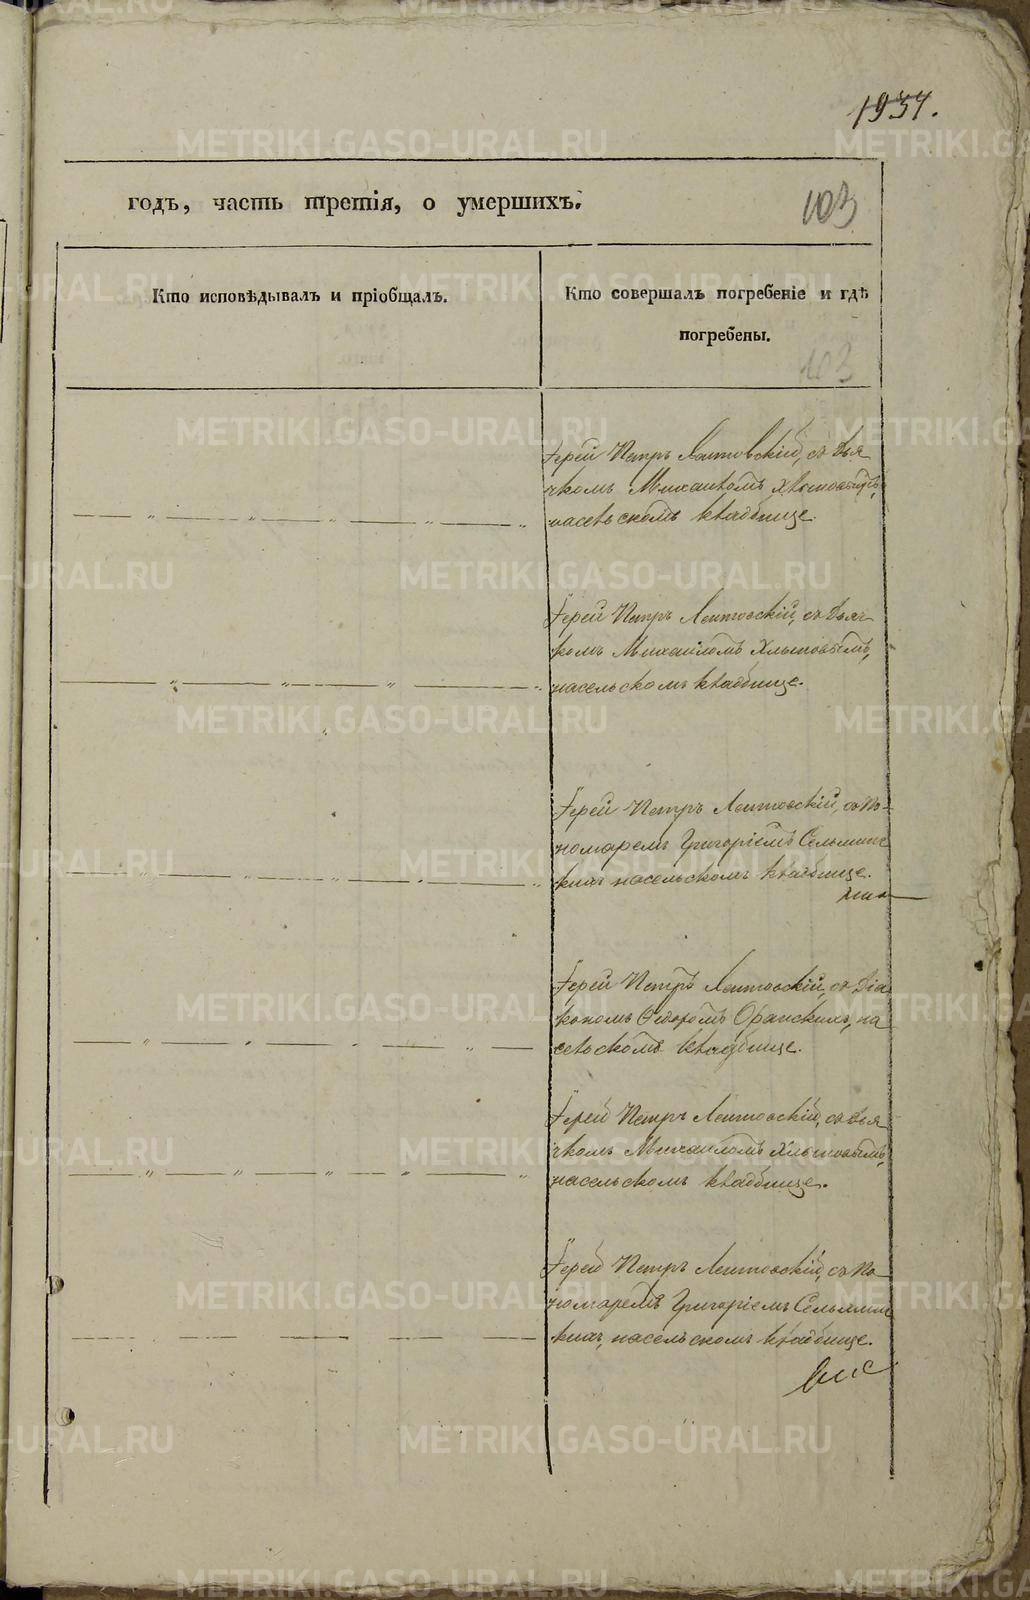 1937.
годъ, часть третія, о умершихъ.
103
Кто исповѣдывалъ и пріобщалъ.
Кто совершалъ погребеніе и гдѣ
погребены.
103
Іерей Петръ Лептовскій, съ Дья
чкомъ Михаиломъ Хлыновымъ,
насельскомъ кладбище.
Іерей Петръ Лептовскій, съ Дьяч
комъ Михаиломъ Хлыновымъ,
насельскомъ кладбище.
Іерей Петръ Лептовскій, съ По-
номаремъ Григоріемъ
насельскомъ кладбище.
Іерей Петръ Лептовскій, съ Діа
кономъ Ѳедоромъ на
сельскомъ кладбище.
Іерей Петръ Лептовскій, съ Дья
чкомъ Михаиломъ Хлыновымъ,
насельскомъ кладбище.
Іерей Петръ Лептовскій, съ По
номаремъ Григоріемъ
насельскомъ кладбище.
METRIKI.GASO-URAL.RU